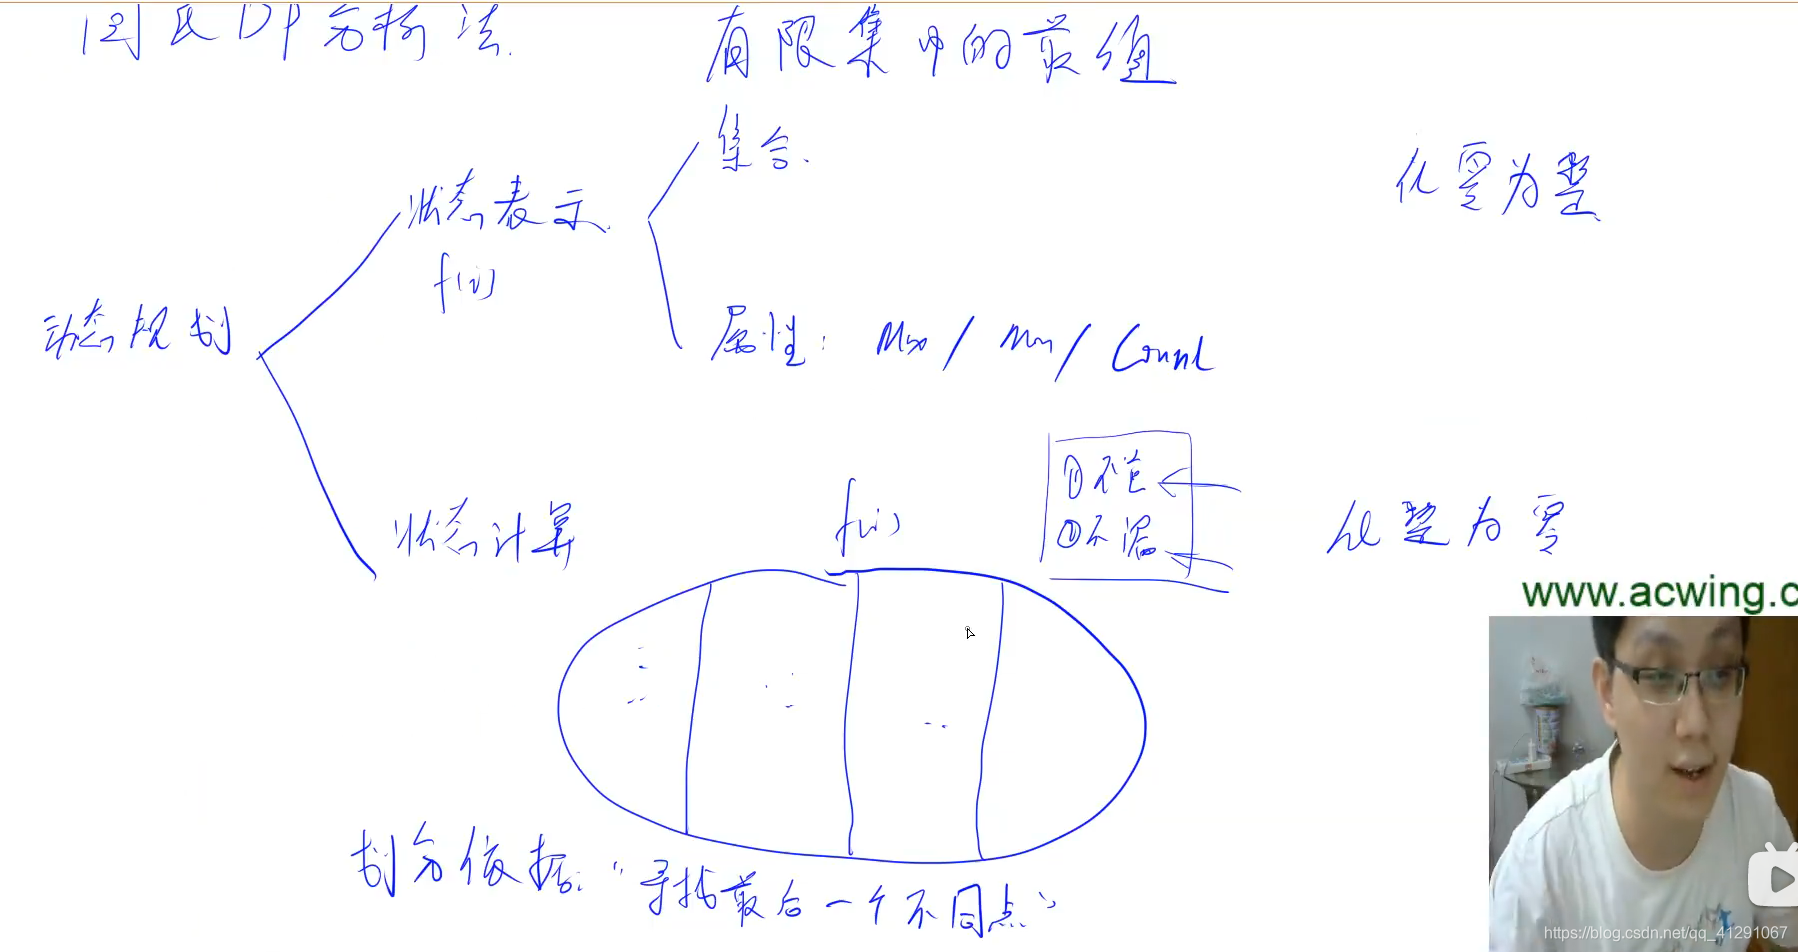 闫氏DP分析法.
有限集中的最值
集合.
化零为整
状态表示.
f(i)
动态规划
属性: Max / Min / Count
①不
②不漏
f(i)
状态计算
化整为零
www.acwing.c
划分依据: "寻找最后一个不同点"
https://blog.csdn.net/qq_41291067